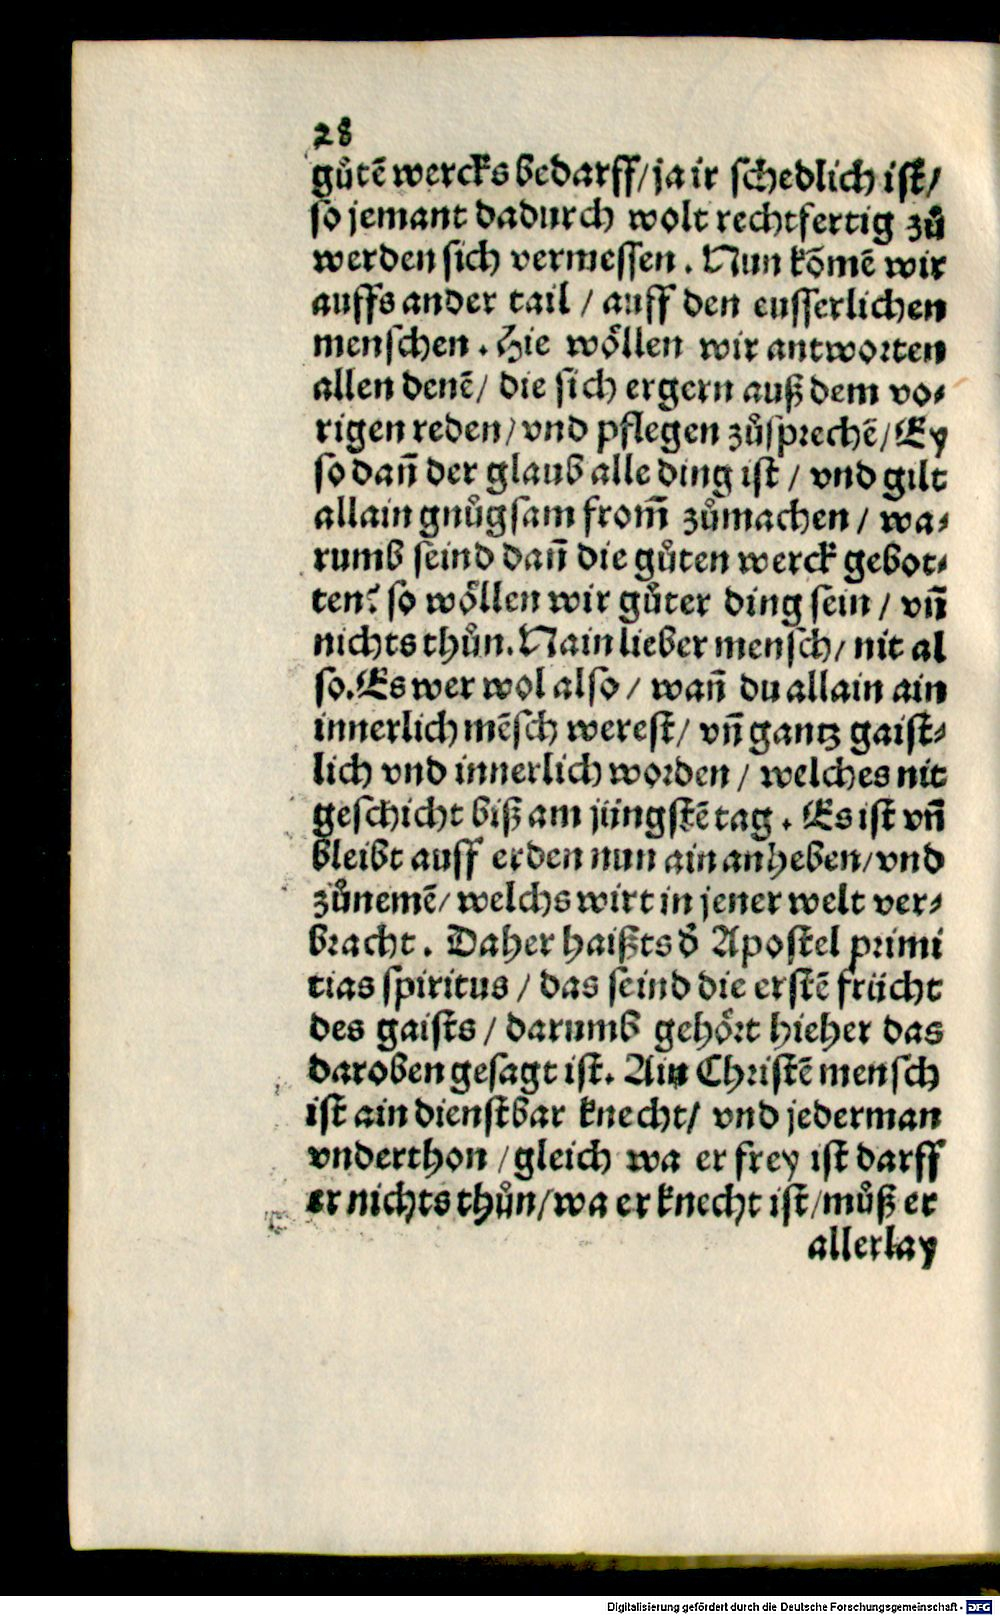 28
gůtē wercks bedarff/ ja ir schedlich ist/
so jemant dadurch wolt rechtfertig zů
werden sich vermessen. Nun kōmē wir
auffs ander tail / auff den eusserlichen
menschen. Hie wöllen wir antworten
allen denē/ die sich ergern auß dem vo⸗
rigen reden/ vnd pflegen zůsprechē/ Ey
so dan̄ der glaub alle ding ist / vnd gilt
allain gnůgsam from̄ zůmachen / wa⸗
rumb seind dan̄ die gůten werck gebot⸗
ten? so wöllen wir gůter ding sein / vn̄
nichts thůn. Nain lieber mensch/ nit al
so. Es wer wol also / wan̄ du allain ain
innerlich mēsch werest/ vn̄ gantz gaist⸗
lich vnd innerlich worden / welches nit
geschicht biß am jüngstē tag. Es ist vn̄
bleibt auff erden nun ain anheben/ vnd
zůnemē/ welchs wirt in jener welt ver⸗
bracht. Daher haißts d̄ Apostel primi
tias spiritus / das seind die erstē frücht
des gaists / darumb gehört hieher das
daroben gesagt ist. Ain Christē mensch
ist ain dienstbar knecht/ vnd jederman
vnderthon / gleich wa er frey ist darff
er nichts thůn/ wa er knecht ist/ můß er
allerlay
Digitalisierung gefördert durch die Deutsche Forschungsgemeinschaft - DFG